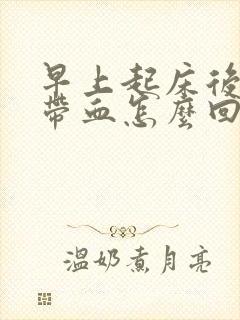 早上起床後
帶血怎麼回
溫奶煮月亮